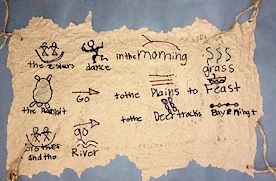 in the morning
the sisters dance grass
the Rabbit Go to the Plains to Feast
go to the Deer tracks
and the River